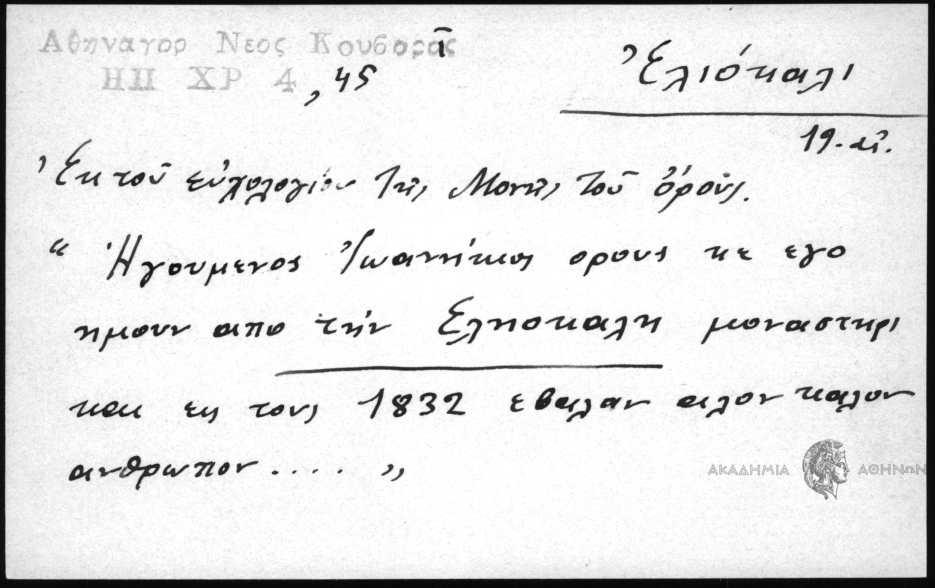 Αθηναγορ Νεος Κουβαρας ī
ΗΠ ΧΡ 4 , 45
Ἐλιόκαλι
19.αἰ.
Ἐκ τοῦ εὐχολογίου τῆς Μονῆς τοῦ ὄρους.
“ Ἡγούμενος Ἰωαννήκιος ορους κε εγο
ημουν απο τὴν Ελησκαλη μοναστηρι
και εις τους 1832 εβαλαν αλον καλον
ανθρωπον .... „
ΑΚΑΔΗΜΙΑ ΑΘΗΝΩΝ